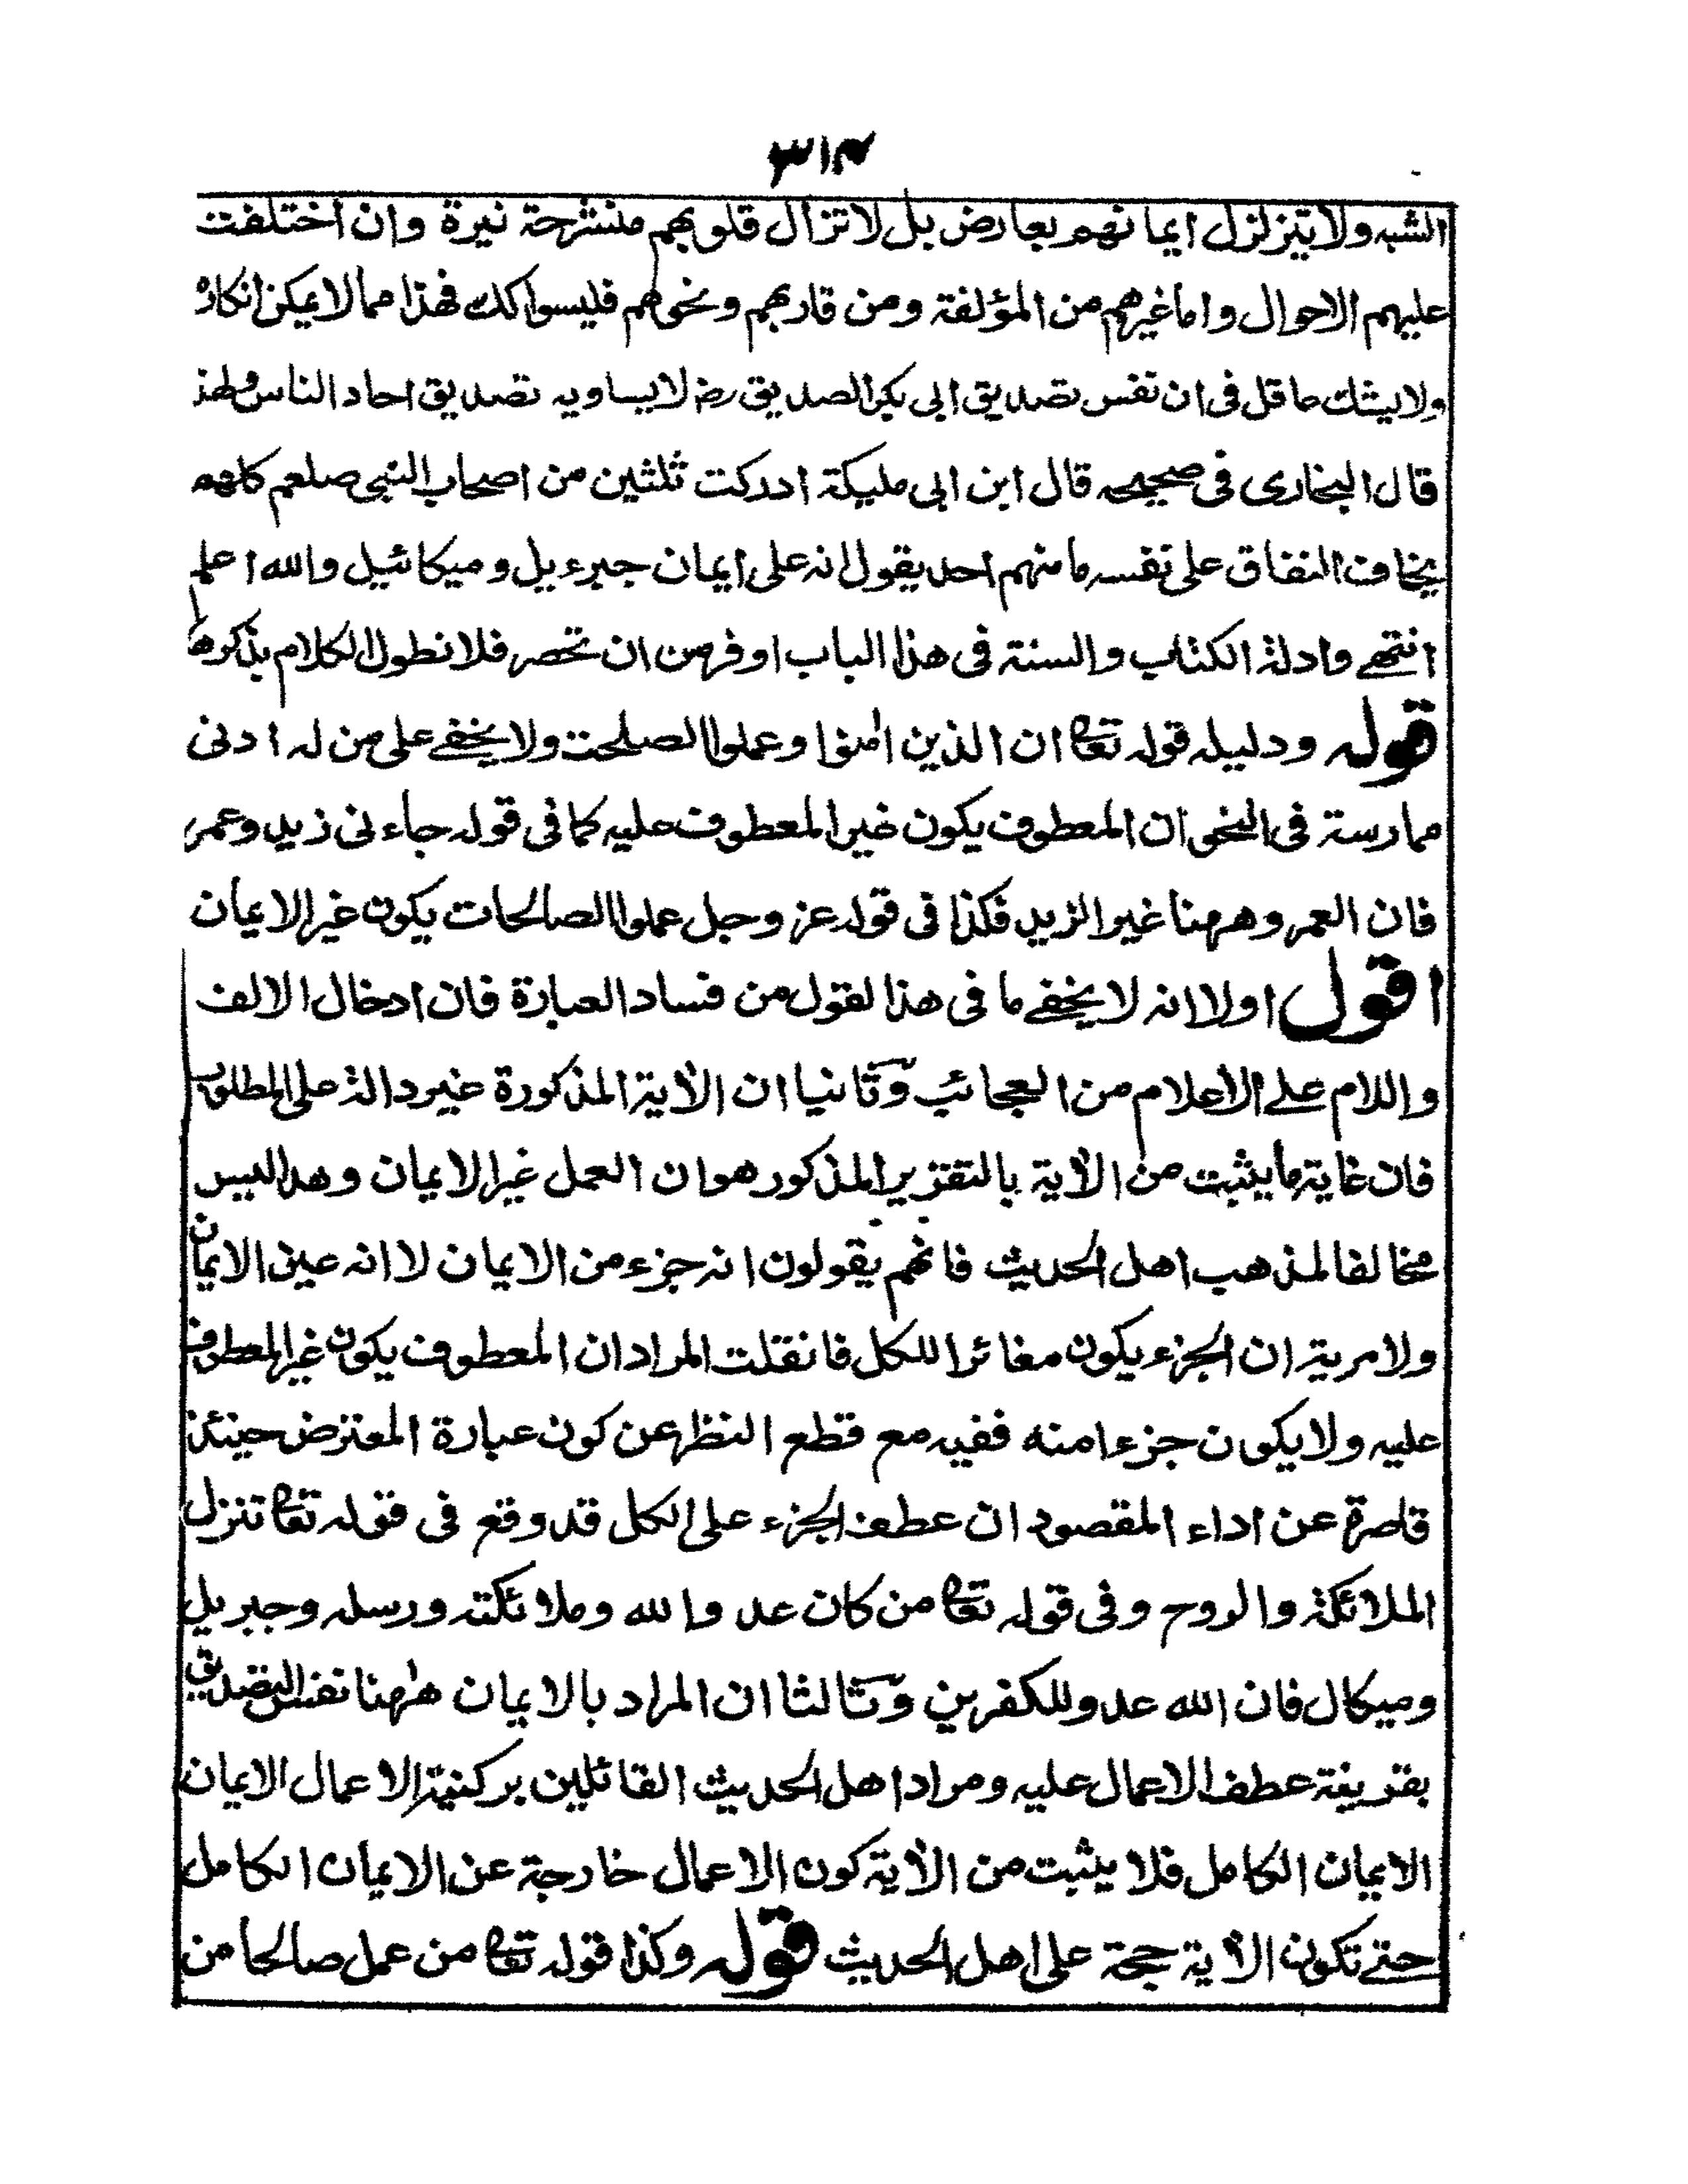 ٣١٤
الشبه ولا يتزلزل ايمانهم بعارض بل لا تزال قلوبهم منشرحة نيرة وان اختلفت
عليهم الاحوال واما غيرهم من المؤلفة ومن قاربهم ونحوهم فليسوا كك فهذا مما لا يمكن انكاره
ولا يشك عاقل فى ان نفس تصديق ابى بكر الصديق رض لا يساويه تصديق احاد الناس ولهذا
قال البخارى فى صحيحه قال ابن ابى مليكة ادركت ثلثين من اصحاب النبى صلعم كلهم
يخاف النفاق على نفسه ما منهم احد يقول انه على ايمان جبرءيل وميكائيل والله اعلم
انتهے وادلة الكتاب والسنة فى هذا الباب اوفر من ان تحصر فلا نطول الكلام بذكرها
قوله ودليله قوله تعا ان الذين اٰمنوا وعملوا الصلحت ولا يخفے على من له ادنى
ممارسة فى النحو ان المعطوف يكون غير المعطوف عليه كما فى قوله جاءنى زيد وعمر
فان العمر وههنا غير الزيد فكذا فى قوله عز وجل عملوا الصالحات يكون غير الايمان
اقول اولا انه لا يخفے ما فى هذا لقول من فساد العبارة فان ادخال الالف
واللام علے الاعلام من العجائب وثانيا ان الاٰية المذكورة غير دالة على المطلوب
فان غاية ما يثبت من الاٰية بالتقرير المذكور هو ان العمل غير الايمان وهذا ليس
مخالفا لمذهب اهل الحديث فانهم يقولون انه جزء من الايمان لا انه عين الايمان
ولا مرية ان الجزء يكون مغائرا للكل فان قلت المراد ان المعطوف يكون غير المعطوف
عليه ولا يكون جزءا منه ففيه مع قطع النظر عن كون عبارة المعترض حينئذ
قاصرة عن اداء المقصود ان عطف الجزء على الكل قد وقع فى قوله تعا تنزل
الملائكة والروح وفى قوله تعا من كان عدوا لله وملائكته ورسله وجبريل
وميكال فان الله عدو للكفرين وثالثا ان المراد بالايمان ههنا نفس التصديق
بقرينة عطف الاعمال عليه ومراد اهل الحديث القائلين بركنية الاعمال الايمان
الايمان الكامل فلا يثبت من الاٰية كون الاعمال خارجة عن الايمان الكامل
حتے تكون الاٰية حجة على اهل الحديث قوله وكذا قوله تعا من عمل صالحا من